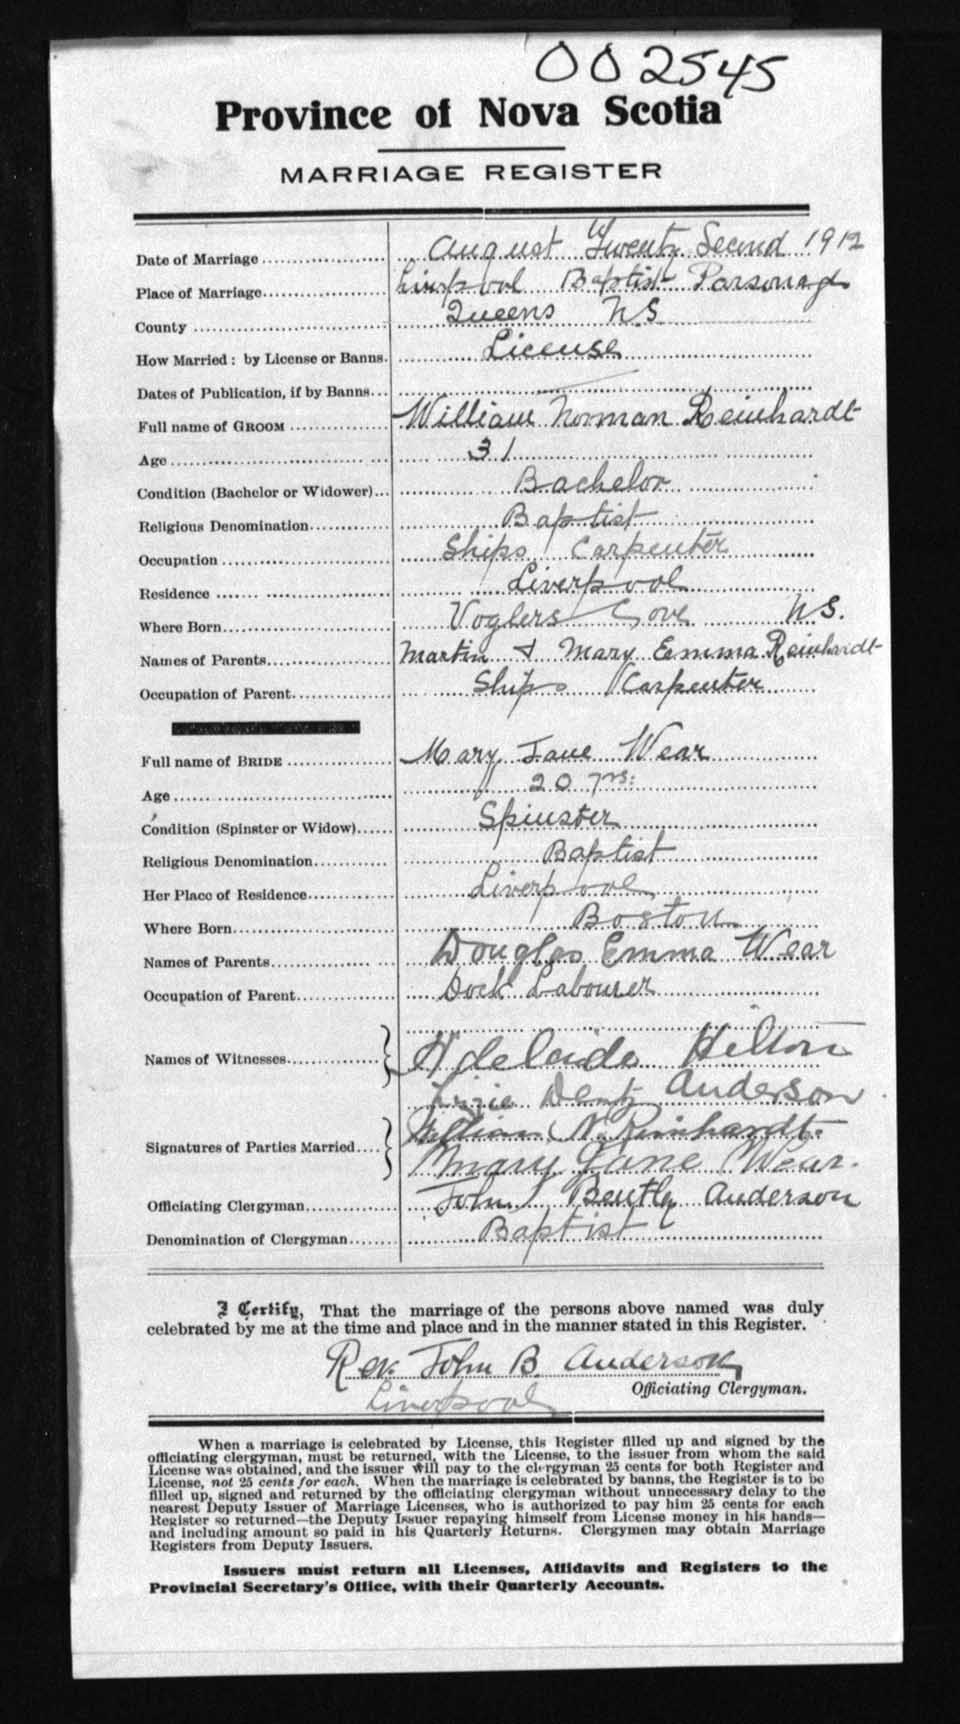 002545
Province of Nova Scotia
MARRIAGE REGISTER
Date of Marriage August Twenty Second 1912
Place of Marriage Liverpool Baptist Parsonage
County Queens N.S
How Married: by License or Banns. License
Dates of Publication, if by Banns
Full name of GROOM William Norman Reinhardt
Age 31
Condition (Bachelor or Widower) Bachelor
Religious Denomination Baptist
Occupation Ships Carpenter
Residence Liverpool
Where Born Voglers Cove N.S.
Names of Parents Martin & Mary Emma Reinhardt
Occupation of Parent Ships Carpenter
Full name of BRIDE Mary Jane Wear
Age 20 yrs.
Condition (Spinster or Widow) Spinster
Religious Denomination Baptist
Her Place of Residence Liverpool
Where Born Boston
Names of Parents Douglas Emma Wear
Occupation of Parent Dock Labourer
Names of Witnesses Adelaide Hilton
Lizzie Anderson
Signatures of Parties Married William N. Reinhardt.
Mary Jane Wear.
Officiating Clergyman John Bently Anderson
Denomination of Clergyman Baptist
I Certify, That the marriage of the persons above named was duly
celebrated by me at the time and place and in the manner stated in this Register.
Rev. John B. Anderson
Officiating Clergyman.
Liverpool
When a marriage is celebrated by License, this Register filled up and signed by the
officiating clergyman, must be returned, with the License, to the issuer from whom the said
License was obtained, and the issuer will pay to the clergyman 25 cents for both Register and
License, not 25 cents for each. When the marriage is celebrated by banns, the Register is to be
filled up, signed and returned by the officiating clergyman without unnecessary delay to the
nearest Deputy Issuer of Marriage Licenses, who is authorized to pay him 25 cents for each
Register so returned—the Deputy Issuer repaying himself from License money in his hands—
and including amount so paid in his Quarterly Returns. Clergymen may obtain Marriage
Registers from Deputy Issuers.
Issuers must return all Licenses, Affidavits and Registers to the
Provincial Secretary's Office, with their Quarterly Accounts.